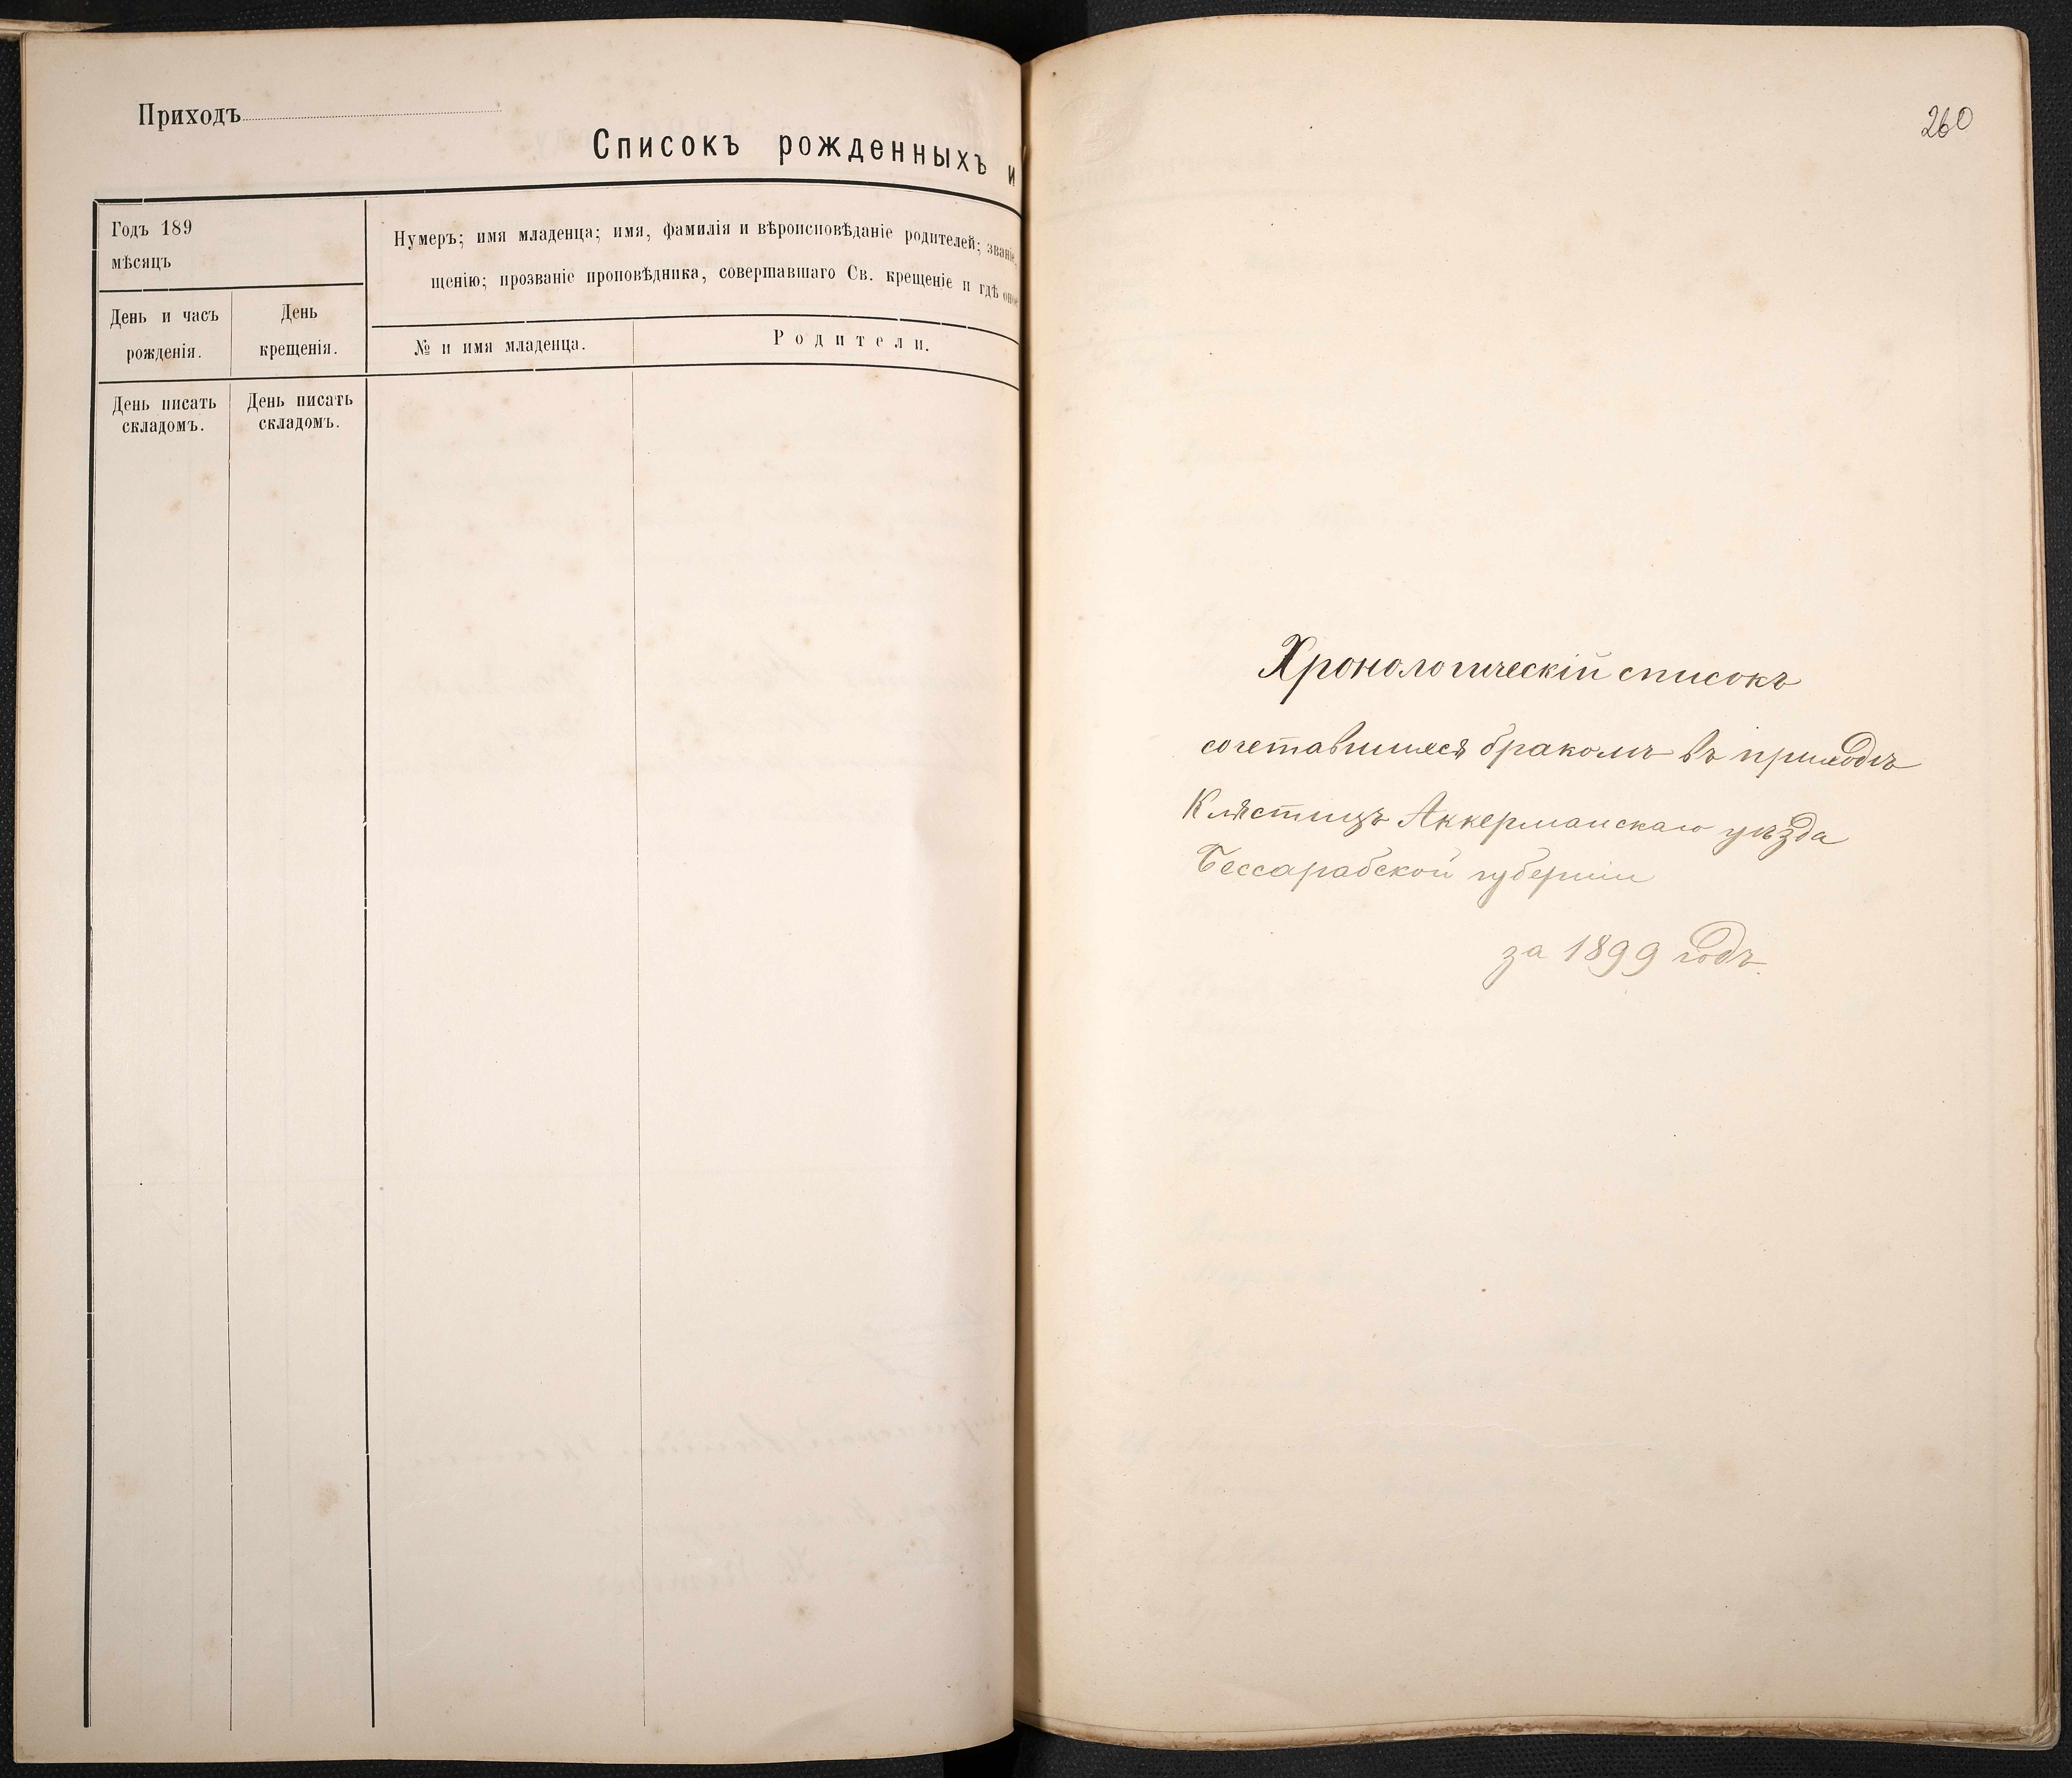 Приходъ
Списокъ рожденныхъ и
Годъ 189
мѣсяцъ
Нумеръ; имя младенца; имя, фамилія и вѣроисповѣданіе родителей; званіе,
щенію; прозваніе проповѣдника, совершавшаго Св. крещеніе и гдѣ оное
День и часъ
рожденія.
День
крещенія.
№ и имя младенца.
Родители.
День писать
складомъ.
День писать
складомъ.
260
Хронологическій списокъ
сочетавшихся бракомъ въ приходѣ
Клястицъ Аккерманскаго уѣзда
Бессарабской губерніи
за 1899 годъ.